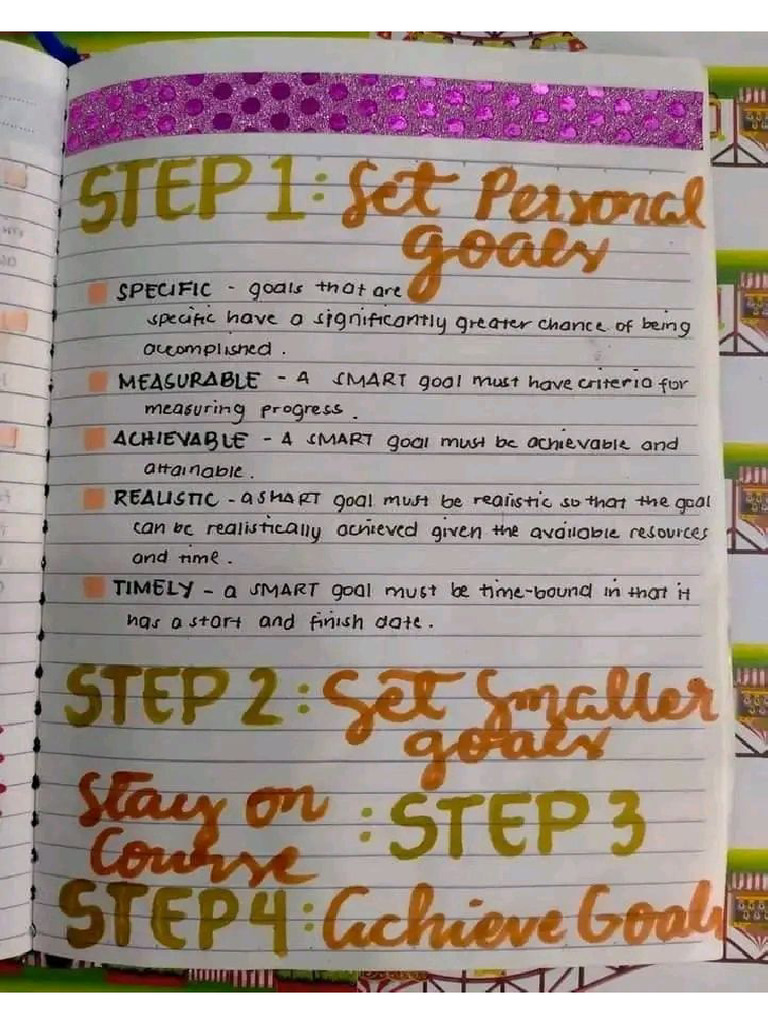 STEP 1: Set Personal
goals
SPECIFIC - goals that are
specific have a significantly greater chance of being
accomplished.
MEASURABLE - A SMART goal must have criteria for
measuring progress.
ACHIEVABLE - A SMART goal must be achievable and
attainable.
REALISTIC - a SMART goal must be realistic so that the goal
can be realistically achieved given the available resources
and time.
TIMELY - a SMART goal must be time-bound in that it
has a start and finish date.
STEP 2: Set Smaller
goals
Stay on
Course : STEP 3
STEP 4: Achieve Goals